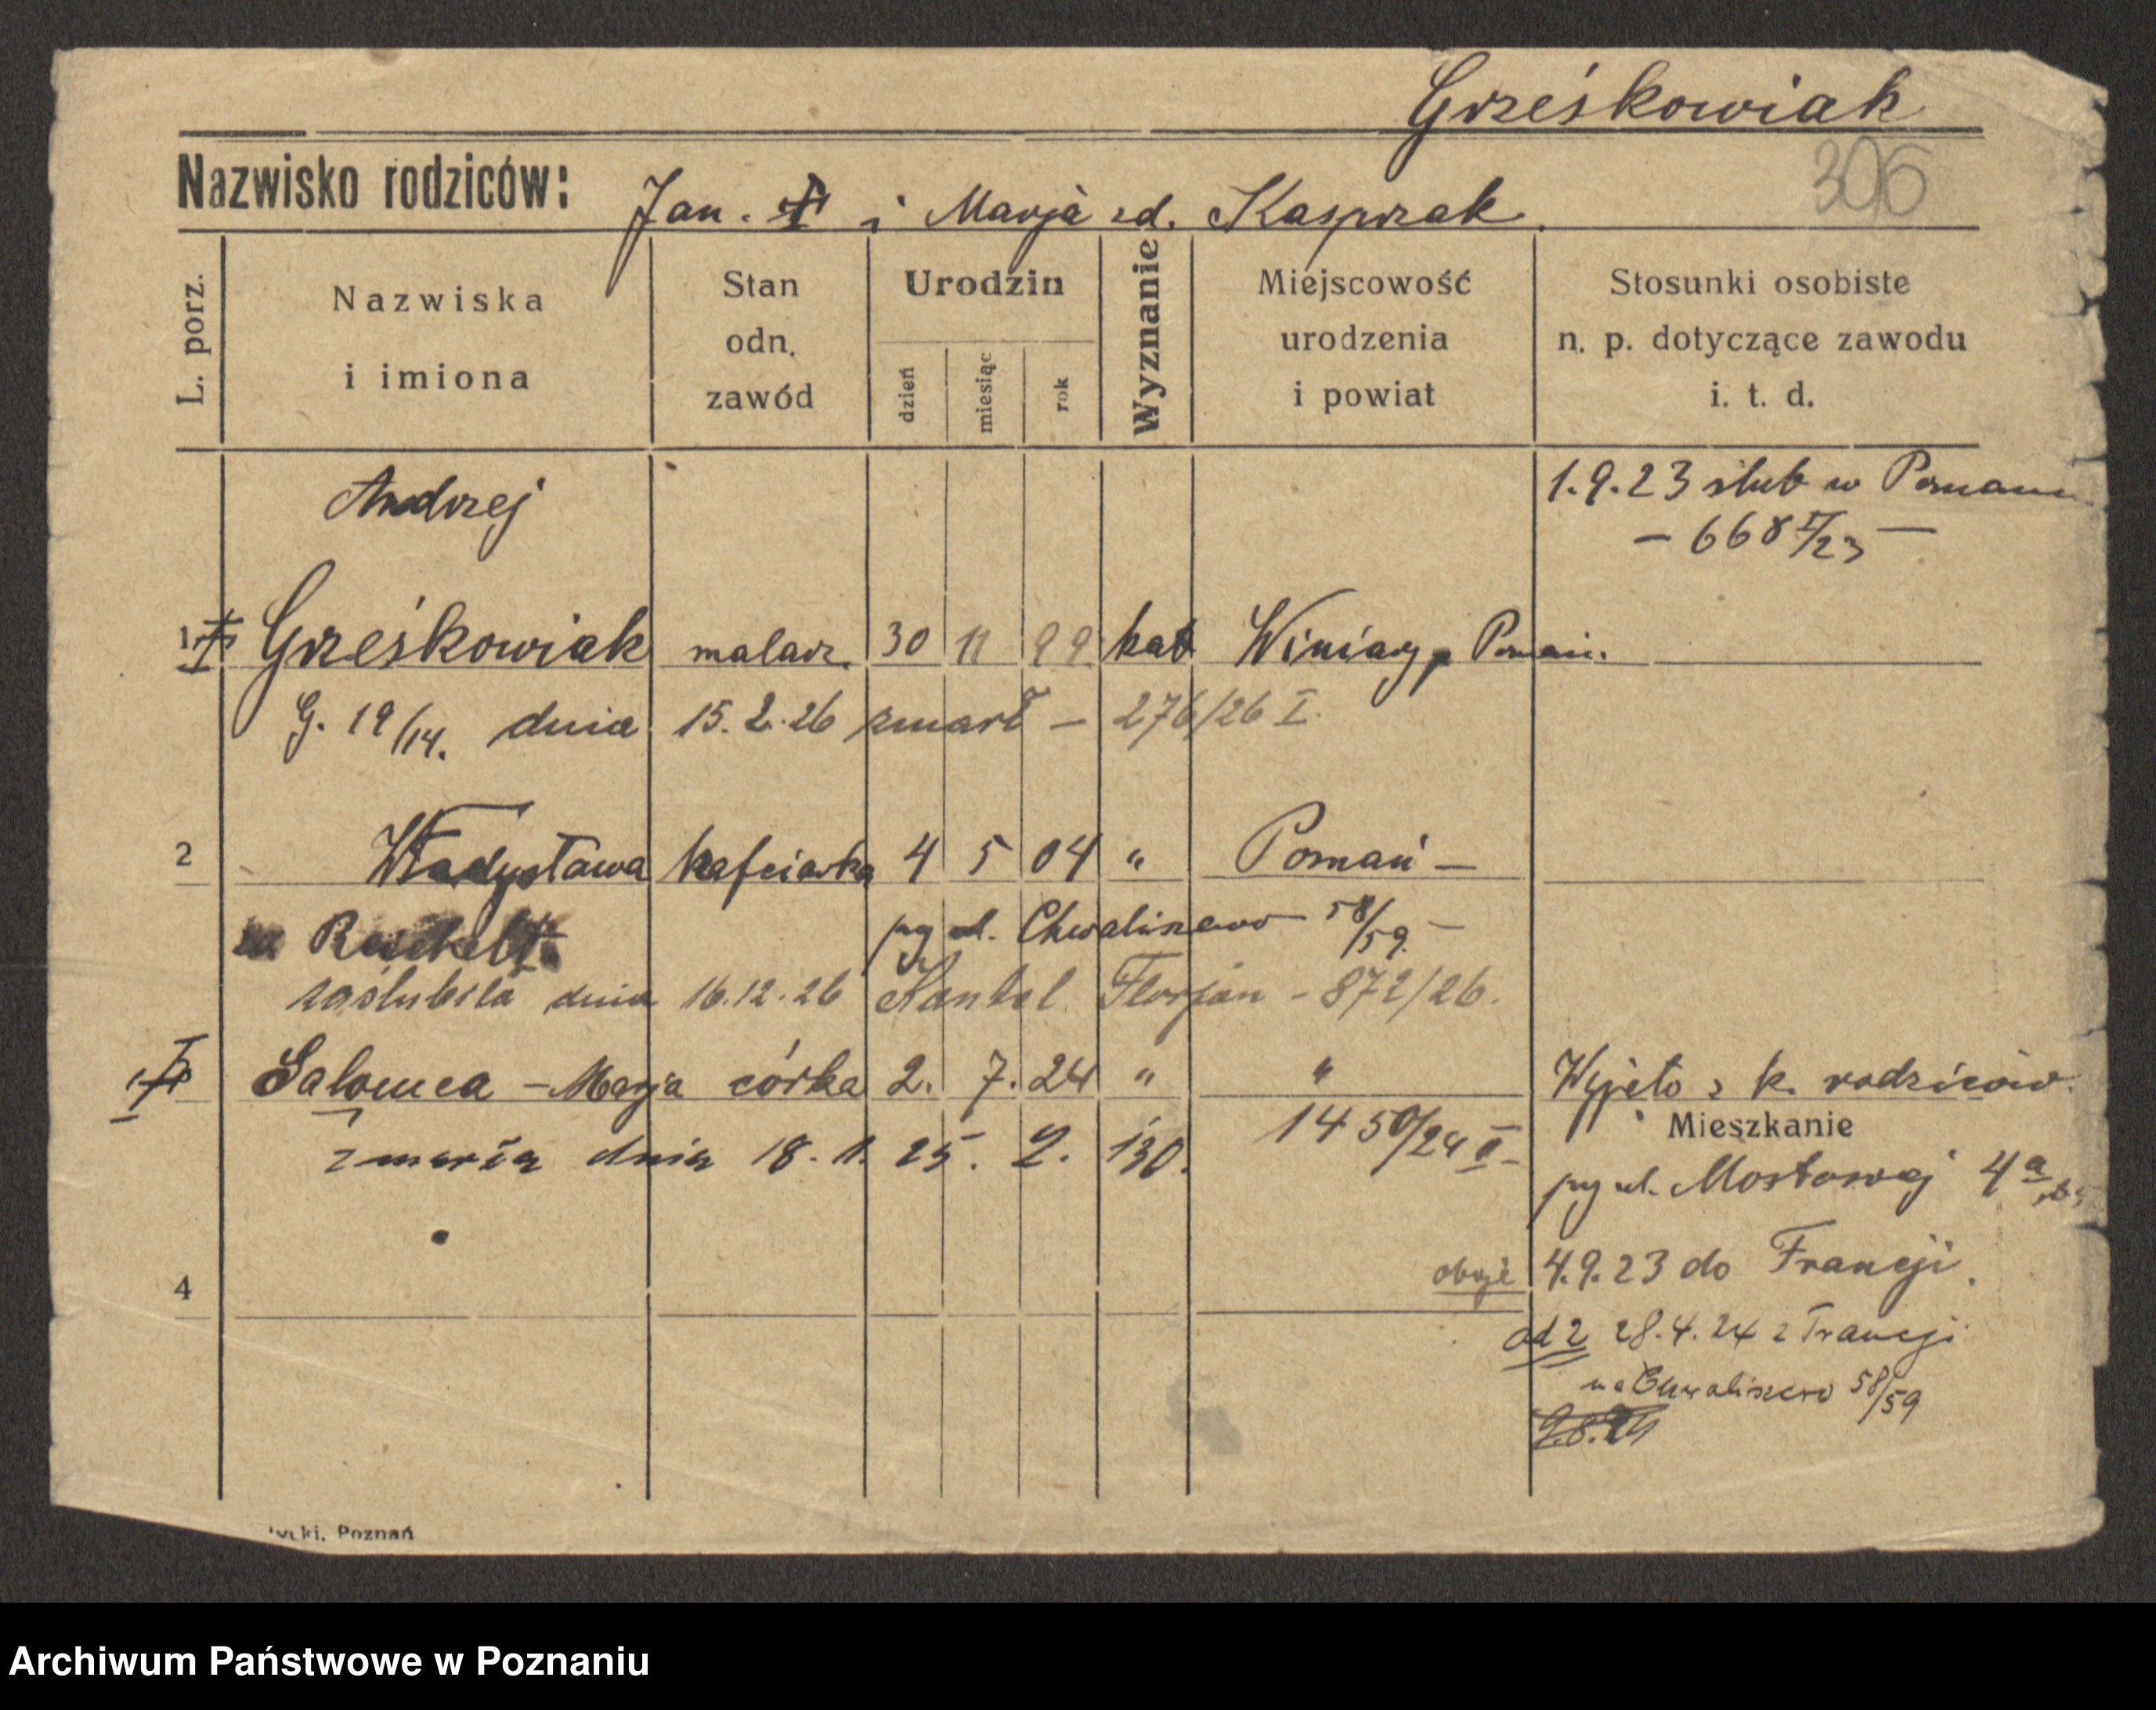 Grześkowiak
306
Nazwisko rodziców: Jan. † i Marja zd. Kasprzak.
L. porz.
Nazwiska i imiona
Stan odn. zawód
Urodzin
dzień
miesiąc
rok
Wyznanie
Miejscowość urodzenia i powiat
Stosunki osobiste n. p. dotyczące zawodu i. t. d.
Andrzej
1.9.23 ślub w Poznaniu
– 668 I/23 –
1 † Grześkowiak malarz. 30 11 99 kat Winiary p Poznań.
G. 19/14. dnia 15.2.26 zmarł – 276/26 I.
2 Władysława hafciarka 4 5 04 " Poznań –
zd Reichelt
py ul. Chwaliszewo 58/59. –
zaślubiła dnia 16.12.26 Florjan – 872/26.
† Salomea – Marja córka 2. 7. 24 " "
Wyjęto z k. rodziców.
zmarła dnia 18.1.25. 2. 130.
1450/24 II –
Mieszkanie
py ul. Mostowej 4a
oboje 4.9.23 do Francji.
4
od 2 28.4.24 z Francji
na Chwaliszewo 58/59
2.8.24
ycki, Poznań
Archiwum Państwowe w Poznaniu